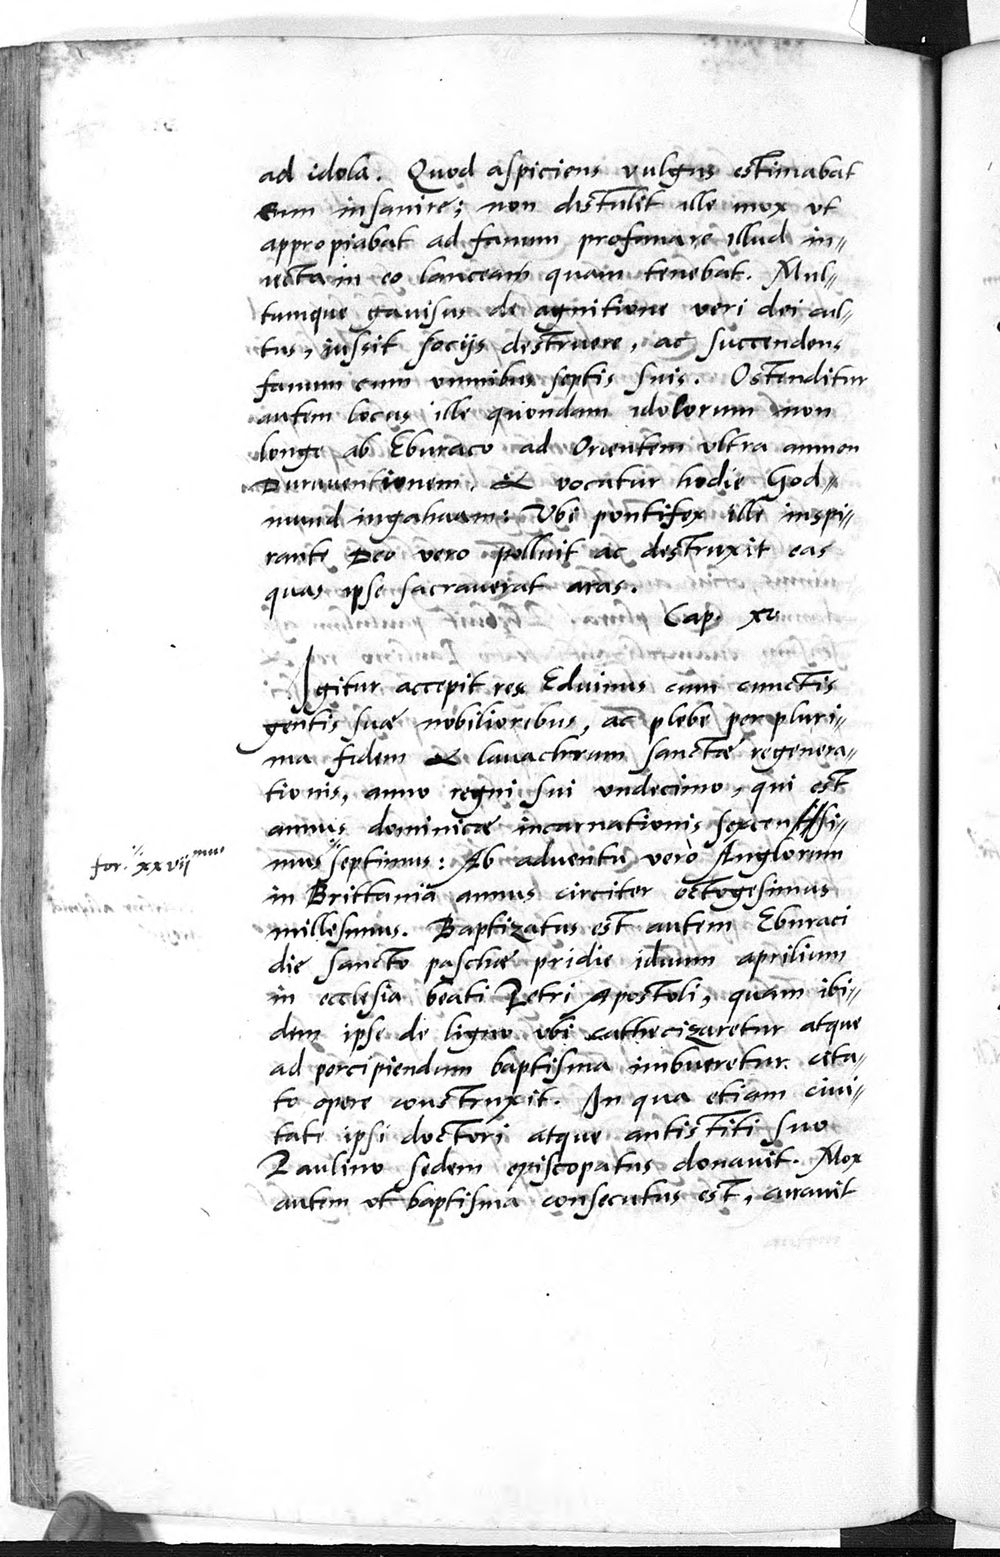 ad idola. Quod aspiciens vulgus estimabat
eum insanire; non distulit ille mox vt
appropiabat ad fanum profanare illud in„
iecta in eo lanceam quam tenebat. Mul„
tumque gauisus de agnitione veri dei cul„
tus, iussit socijs destruere, ac succendens
fanum cum omnibus septis suis. Ostenditur
autem locus ille quondam idolorum non
longe ab Eburaco ad Orientem vltra amnen
Duruuentionem, & vocatur hodie God„
mund ingahaam: Vbi pontifex ille inspi„
rante Deo vero polluit ac destruxit eas
quas ipse sacrauerat aras.
Cap. xv
Igitur accepit rex Eduinus cum cunctis
gentis suæ nobilioribus, ac plebe per pluri„
ma fidem & lauachrum sanctæ regenera„
tionis, anno regni sui vndecimo, qui est
annus dominicæ incarnationis sexcentissi„
mus "septimus: Ab aduentu verò Anglorum
for. "xxvijmus
in Brittania annus circiter octogesimus
millesimus. Baptizatus est autem Eburaci
die sancto paschæ pridie iduum aprilium
in ecclesia beati Petri Apostoli, quam ibi„
dem ipse de ligno vbi cathecizaretur atque
ad percipiendum baptisma imbueretur cita„
to opere construxit. In qua etiam ciui„
tate ipsi doctori atque antistiti suo
Paulino sedem episcopatus donauit. Mox
autem vt baptisma consecutus est, curauit